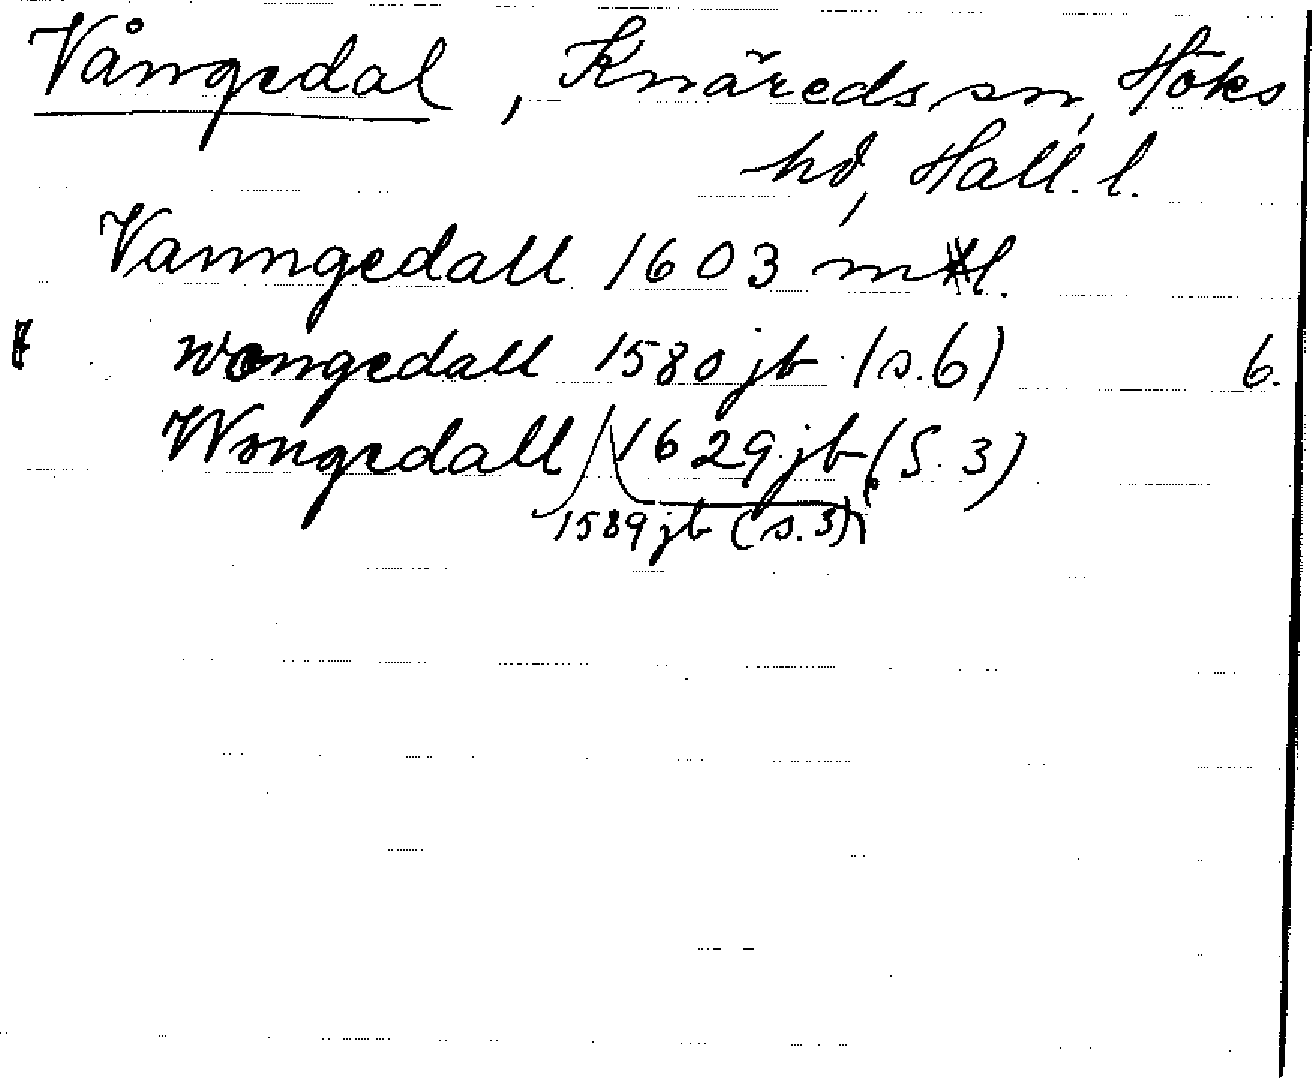 Vångedal, Knäreds sn, Höks
hd, Hall. l.
Vanngedall 1603 ml.
wongedall 1580 jb (s.6) 6.
Wongedall 1629 jb (S. 3)
1589 jb (s.3)